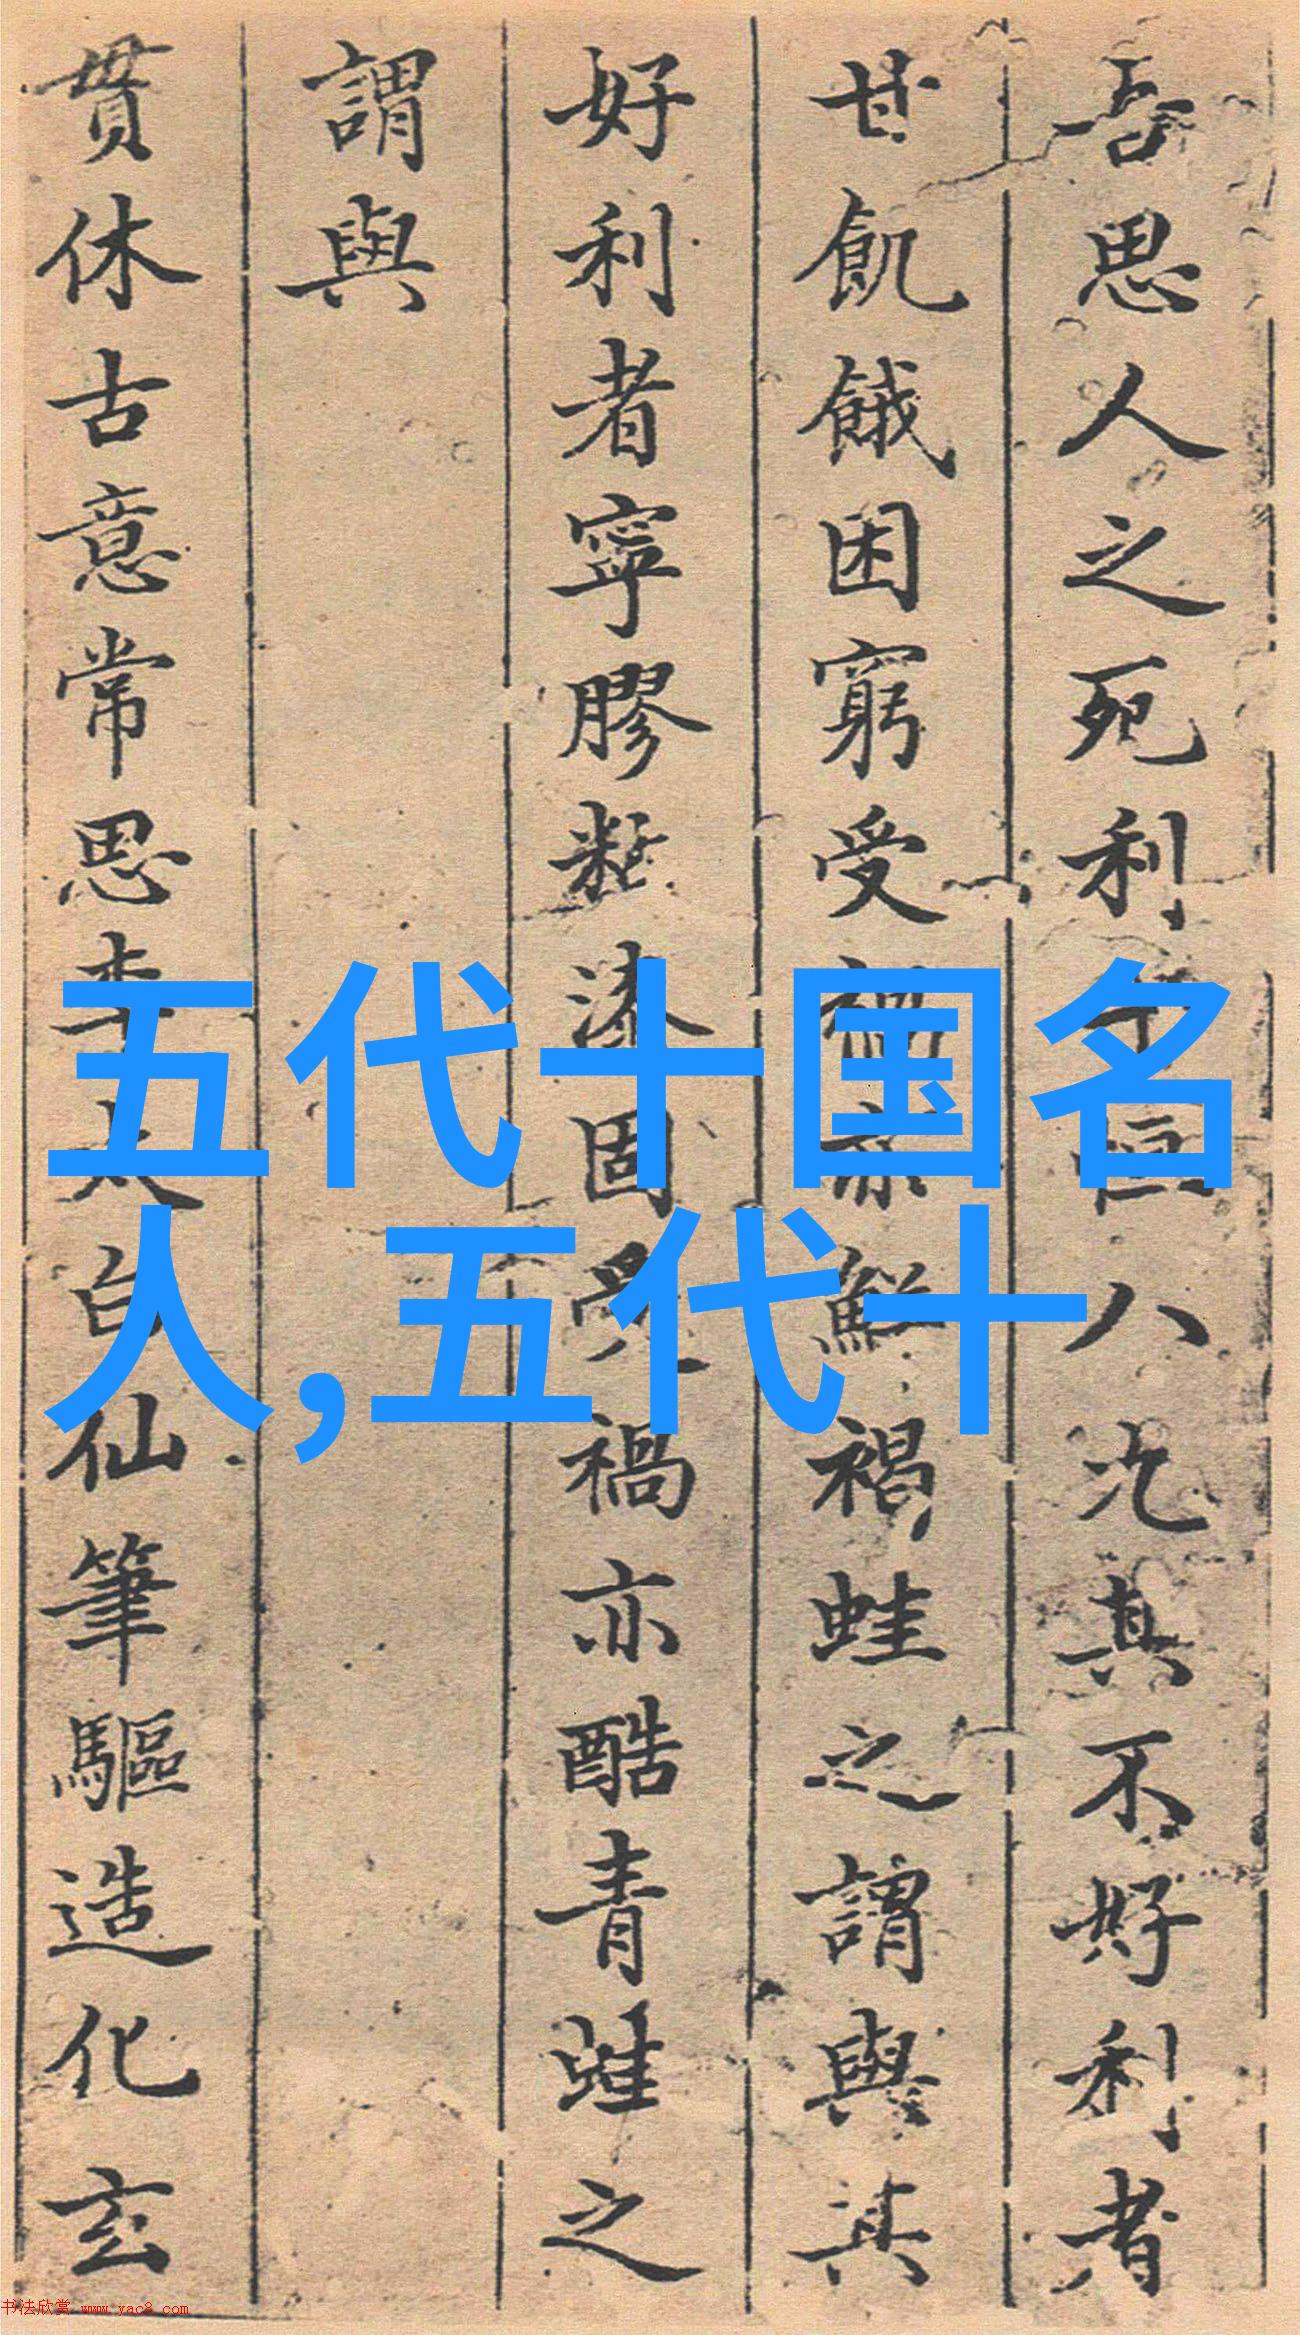 吾思人之死利十恒八其不好利者
甘飢餓困窮受禍亦鮮褐蛙之謂與其
好利者寧膠黏漆固受禍亦酷青蛙之
謂與
貫休古意常思李太白仙筆驅造化玄
五代十国名
人,五代十
书法欣赏 www.yac8.com